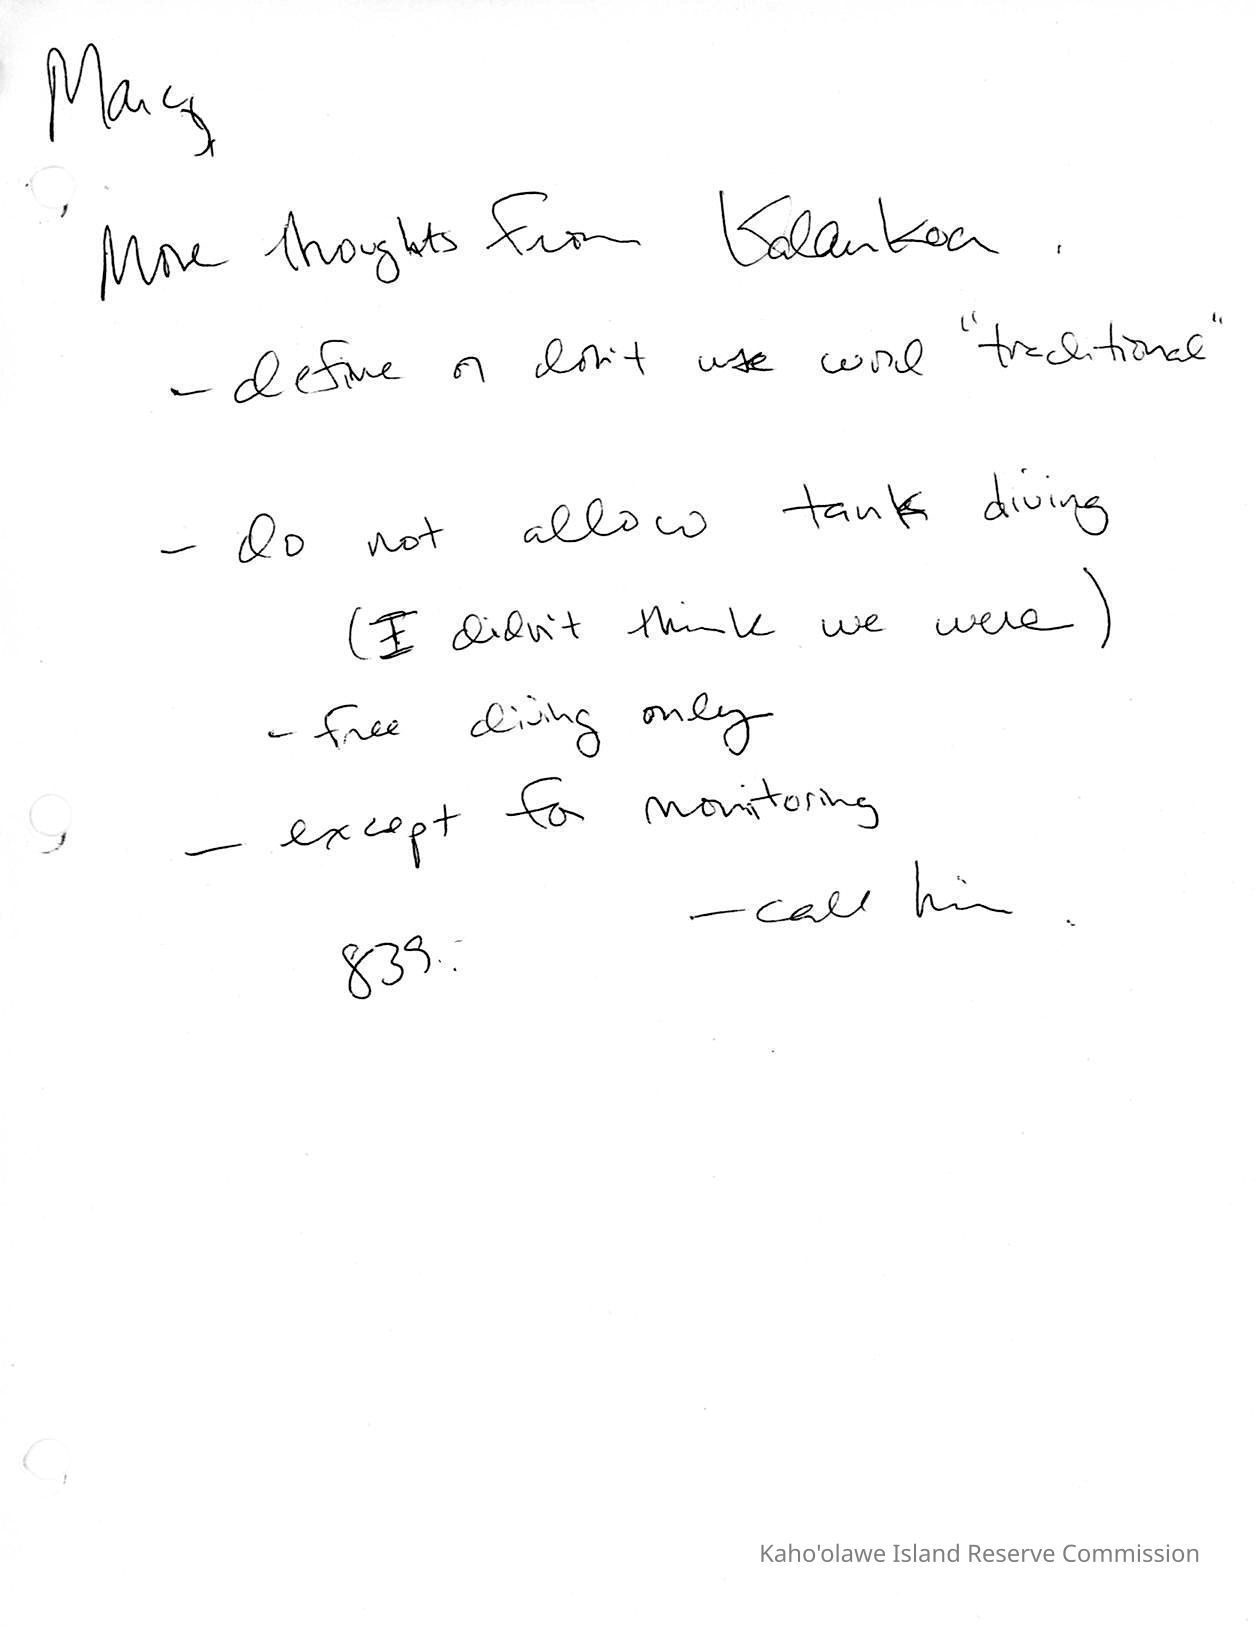 Marcy
More thoughts from Kalankoa.
- define or don't use word "traditional"
- do not allow tank diving
(I didn't think we were)
- free diving only
- except for monitoring
- call him.
839
Kaho'olawe Island Reserve Commission